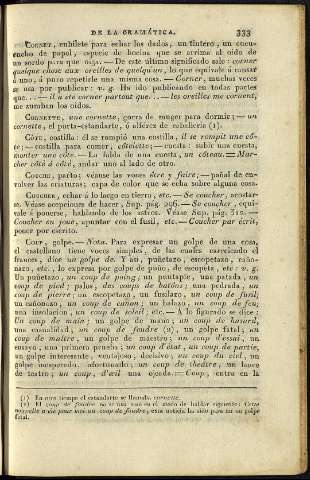 DE LA GRAMÁTICA. 333
CORNET, cubilete para echar los dados, un tintero, un cucu-
rucho de papel, especie de bocina que se arrima al oido de
un sordo para que oiga. — De este último significado sale: corner
quelque chose aux oreilles de quelqu'un, lo que equivale á
á uno, á puro repetirle una misma cosa. — Corner, muchas veces
se usa por publicar: v. g. Ha ido publicando en todas partes
que... il a été corner partout que... — les oreilles me cornent,
me zumban los oidos.
CORNETTE, une cornette, gorra de muger para dormir; — un
cornette, el porta-estandarte, ó alferez de caballería (1).
CÔTE, costilla: él se rompió una costilla, il se rompit une cô-
te; — costilla para comer, côtelette; — cuesta: subir una cuesta,
monter une côte. — La falda de una cuesta, un côteau. = Mar-
cher côte á côte, andar uno al lado de otro.
COUCHE, parto; véanse las voces être y faire; — pañal de en-
volver las criaturas; capa de color que se echa sobre alguna cosa.
COUCHER, echar á lo largo en tierra, etc. — Se coucher, acostar-
se. Véase acepciones de hacer, Sup. pág. 296. — Se coucher, equi-
vale á ponerse, hablando de los astros. Véase Sup. pág. 310. —
Coucher en joue, apuntar con el fusil, etc. — Coucher par écrit,
poner por escrito.
COUP, golpe. — Nota. Para expresar un golpe de una cosa,
el castellano tiene voces simples, de las cuales careciendo el
frances, dice un golpe de. Y asi, puñetazo, escopetazo, caño-
nazo, etc., lo expresa por golpe de puño, de escopeta, etc: v. g.
Un puñetazo, un coup de poing; un puntapie, una patada, un
coup de pied; palos, des coups de batons; una pedrada, un
coup de pierre; un escopetazo, un fusilazo, un coup de fusil;
un cañonazo, un coup de canon; un balazo, un coup de feu;
una insolacion, un coup de soleil, etc. — A lo figurado se dice;
Un coup de main; un golpe de mano; un coup de hasard,
una casualidad; un coup de foudre (2), un golpe fatal; un
coup de maître, un golpe de maestro; un coup d'essai, un
ensayo, una primera prueba; un coup d'état, un coup de partie,
un golpe interesante, ventajoso, decisivo; un coup du ciel, un
golpe inesperado, afortunado; un coup de théatre, un lance
de teatro; un coup d'œil una ojeada. = Coup, entra en la
(1) En otro tiempo el estandarte se llamaba cornette.
(2) El coup de foudre se usa en el modo de hablar siguiente: Cette
nouvelle a été pour moi un coup de foudre, esta noticia ha sido para mí un golpe
fatal.